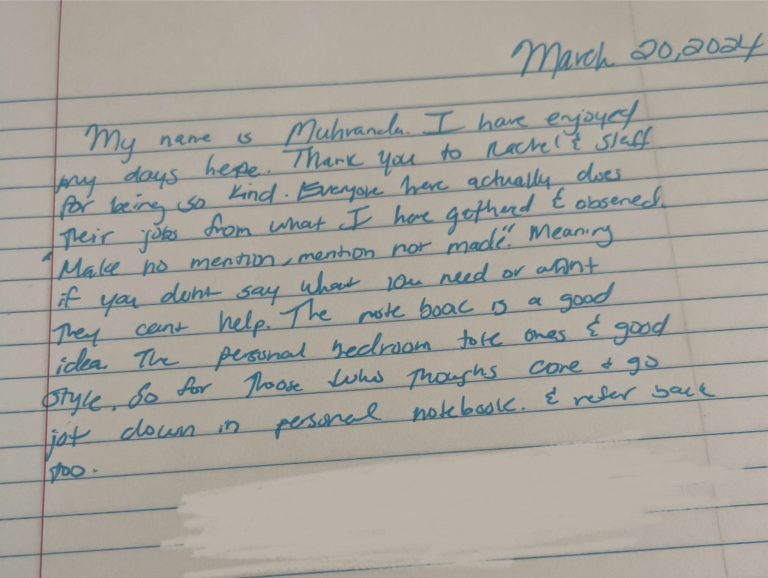 March 20, 2024
My name is Muhranda. I have enjoyed
my days here. Thank you to Rachel & Staff
for being so kind. Everyone here actually does
their jobs from what I have getherd & obsened.
"Make no mention, mention nor made". Meaning
if you dont say what you need or want
They cant help. The note boac is a good
idea. The personal bedroom tote ones & good
style. So for Those who Thoughs come & go
jot down in personal notebook. & refer back
too.